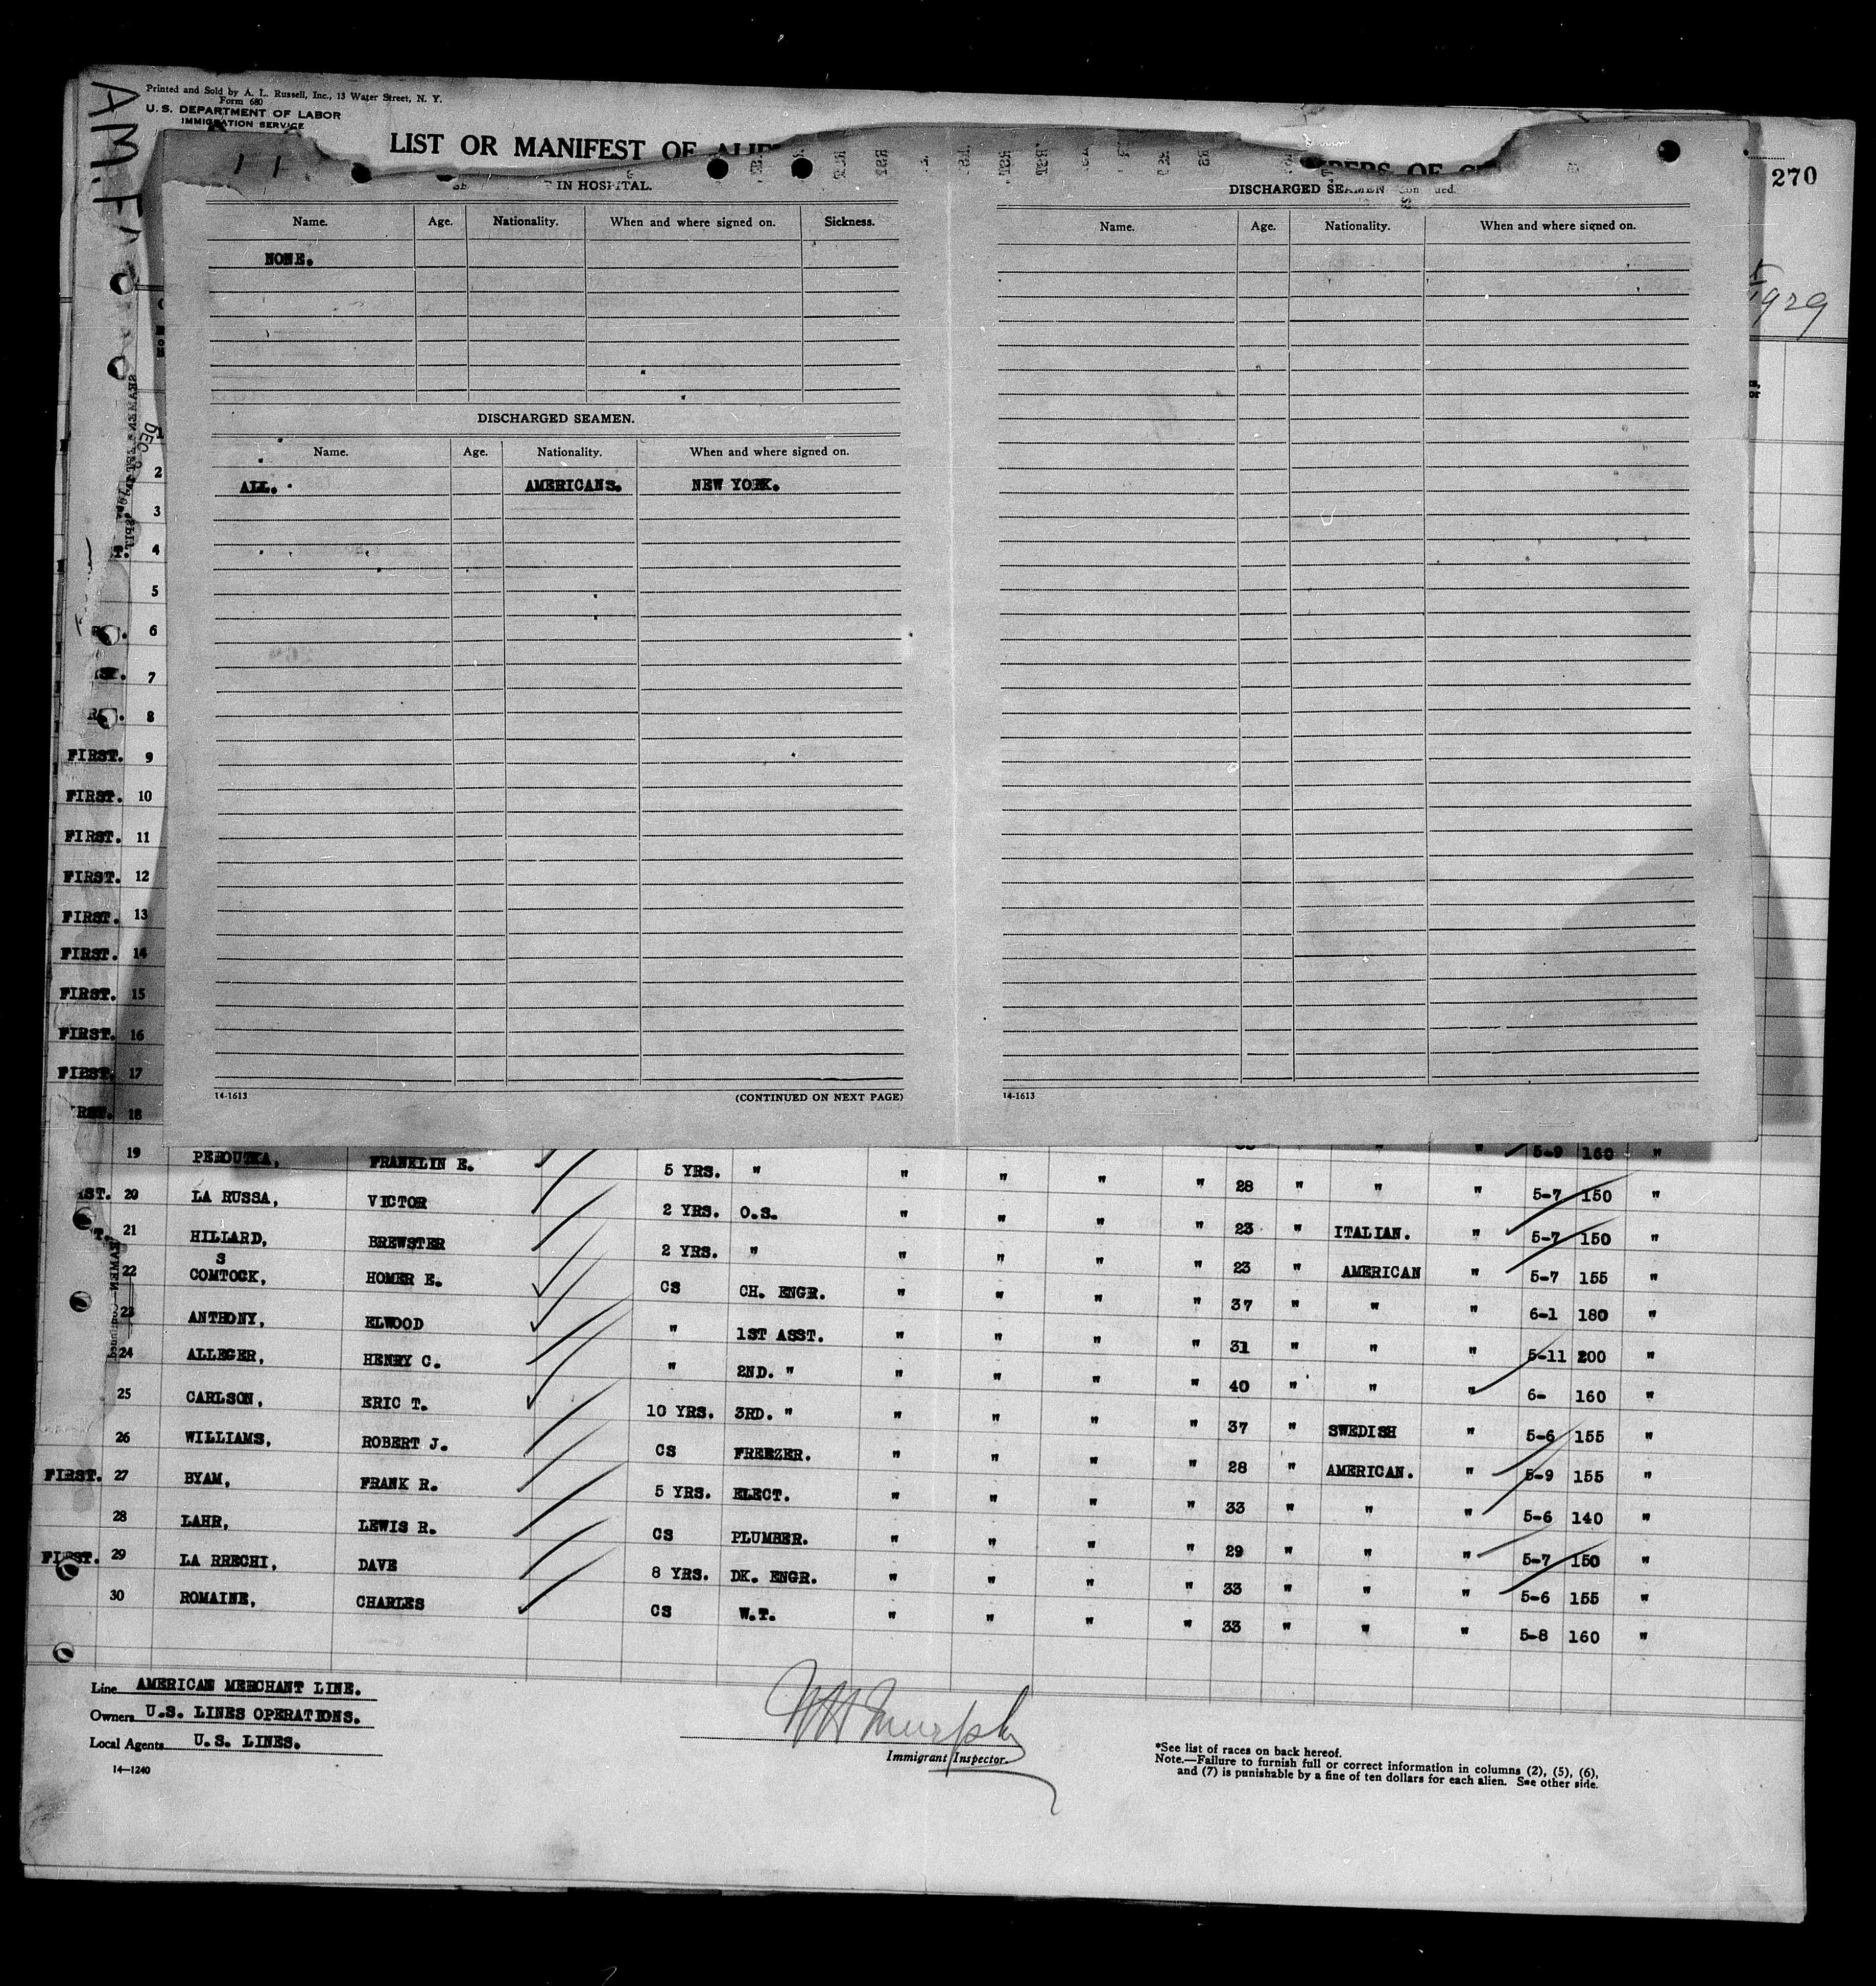 AM.F
Printed and Sold by A. L. Russell, Inc., 13 Water Street, N. Y.
Form 680
U. S. DEPARTMENT OF LABOR
IMMIGRATION SERVICE
LIST OR MANIFEST OF ALIE
OF
270
1929
IN HOSPITAL.
Name. Age. Nationality. When and where signed on. Sickness.
NONE.
DISCHARGED SEAMEN.
Name. Age. Nationality. When and where signed on.
ALL. AMERICANS. NEW YORK.
14-1613 (CONTINUED ON NEXT PAGE)
DISCHARGED SEAMEN
Name. Age. Nationality. When and where signed on.
14-1613
DEC
2
3
4
5
6
7
8
FIRST. 9
FIRST. 10
FIRST. 11
FIRST. 12
FIRST. 13
FIRST. 14
FIRST. 15
FIRST. 16
FIRST. 17
RST. 18
19 PEROUTKA, FRANKLIN E. 5 YRS. " " " " " 28 " " " 5-7 150 "
5-9 160 "
ST. 20 LA RUSSA, VICTOR 2 YRS. O.S. " " " " 23 " ITALIAN. " 5-7 150 "
T. 21 HILLARD, BREWSTER 2 YRS. " " " " " 23 " AMERICAN " 5-7 155 "
S
22 COMTOCK, HOMER E. CS CH. ENGR. " " " " 37 " " " 6-1 180 "
23 ANTHONY, ELWOOD " 1ST ASST. " " " " 31 " " " 5-11 200 "
24 ALLEGER, HENRY C. " 2ND. " " " " " 40 " " " 6- 160 "
25 CARLSON, ERIC T. 10 YRS. 3RD. " " " " " 37 " SWEDISH " 5-6 155 "
26 WILLIAMS, ROBERT J. CS FREEZER. " " " " 28 " AMERICAN. " 5-9 155 "
FIRST. 27 BYAM, FRANK R. 5 YRS. ELECT. " " " " 33 " " " 5-6 140 "
28 LAHR, LEWIS R. CS PLUMBER. " " " " 29 " " " 5-7 150 "
FIRST. 29 LA RRECHI, DAVE 8 YRS. DK. ENGR. " " " " 33 " " " 5-6 155 "
30 ROMAINE, CHARLES CS W.T. " " " " 33 " " " 5-8 160 "
Line AMERICAN MERCHANT LINE.
Owners U.S. LINES OPERATIONS.
Local Agents U.S. LINES.
14—1240
W H Murphy
Immigrant Inspector.
*See list of races on back hereof.
Note.—Failure to furnish full or correct information in columns (2), (5), (6),
and (7) is punishable by a fine of ten dollars for each alien. See other side.